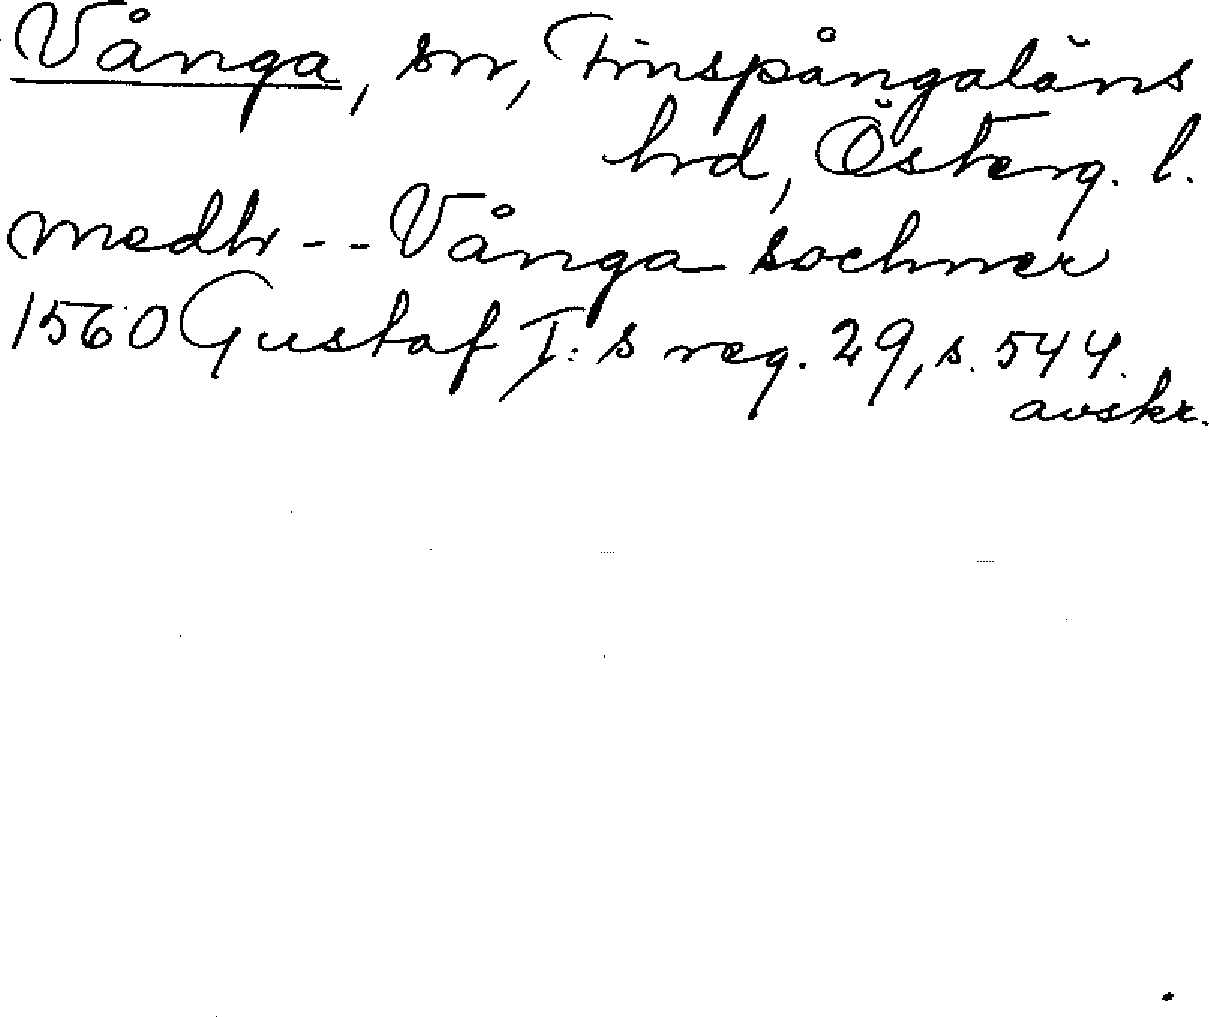 Vånga, sn, Finspångaläns
hrd, Österg. l.
medh -- Vånga sochner
1560 Gustaf I:s reg. 29, s. 544.
avskr.